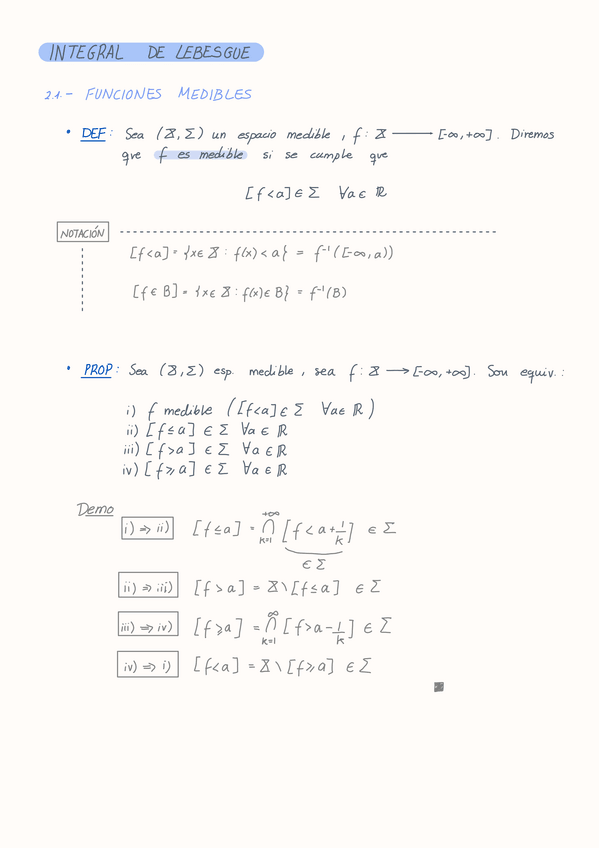 INTEGRAL DE LEBESGUE
2.1.- FUNCIONES MEDIBLES
• DEF: Sea (X, Σ) un espacio medible, f: X ⟶ [-∞,+∞]. Diremos
que f es medible si se cumple que
[f<a] ∈ Σ ∀a ∈ ℝ
NOTACIÓN
[f<a] = {x∈ X : f(x) < a} = f⁻¹([-∞,a))
[f ∈ B] = {x∈ X : f(x)∈ B} = f⁻¹(B)
• PROP: Sea (X,Σ) esp. medible, sea f: X ⟶ [-∞,+∞]. Son equiv.:
i) f medible ([f<a] ∈ Σ ∀a∈ ℝ)
ii) [f≤a] ∈ Σ ∀a ∈ ℝ
iii) [f>a] ∈ Σ ∀a ∈ ℝ
iv) [f⩾a] ∈ Σ ∀a ∈ ℝ
Demo
i) ⇒ ii) [f≤a] = ⋂_{k=1}^{+∞} [f < a+1/k] ∈ Σ
∈ Σ
ii) ⇒ iii) [f>a] = X\[f≤a] ∈ Σ
iii) ⇒ iv) [f⩾a] = ⋂_{k=1}^{∞} [f>a-1/k] ∈ Σ
iv) ⇒ i) [f<a] = X\[f⩾a] ∈ Σ